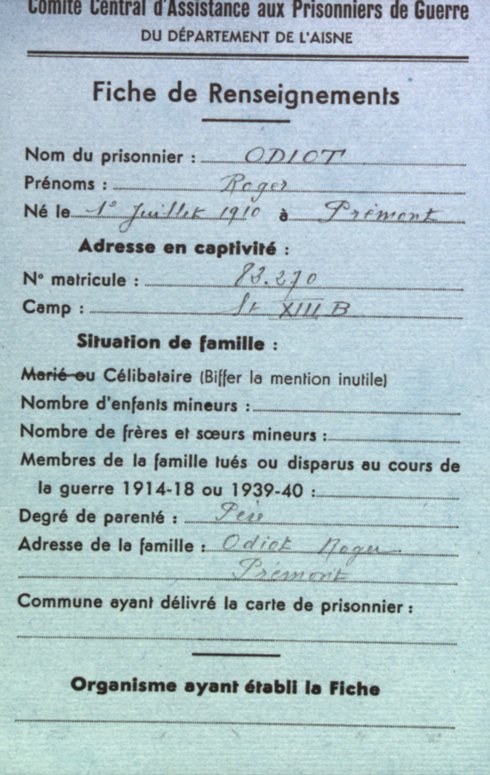 Comité Central d'Assistance aux Prisonniers de Guerre
DU DÉPARTEMENT DE L'AISNE
Fiche de Renseignements
Nom du prisonnier : ODIOT
Prénoms : Roger
Né le 1º Juillet 1910 à Prémont
Adresse en captivité :
Nº matricule : 83.270
Camp : St XIII B
Situation de famille :
Marié ou Célibataire (Biffer la mention inutile)
Nombre d'enfants mineurs :
Nombre de frères et sœurs mineurs :
Membres de la famille tués ou disparus au cours de
la guerre 1914-18 ou 1939-40 :
Degré de parenté : Père
Adresse de la famille : Odiot Roger
Prémont
Commune ayant délivré la carte de prisonnier :
Organisme ayant établi la Fiche